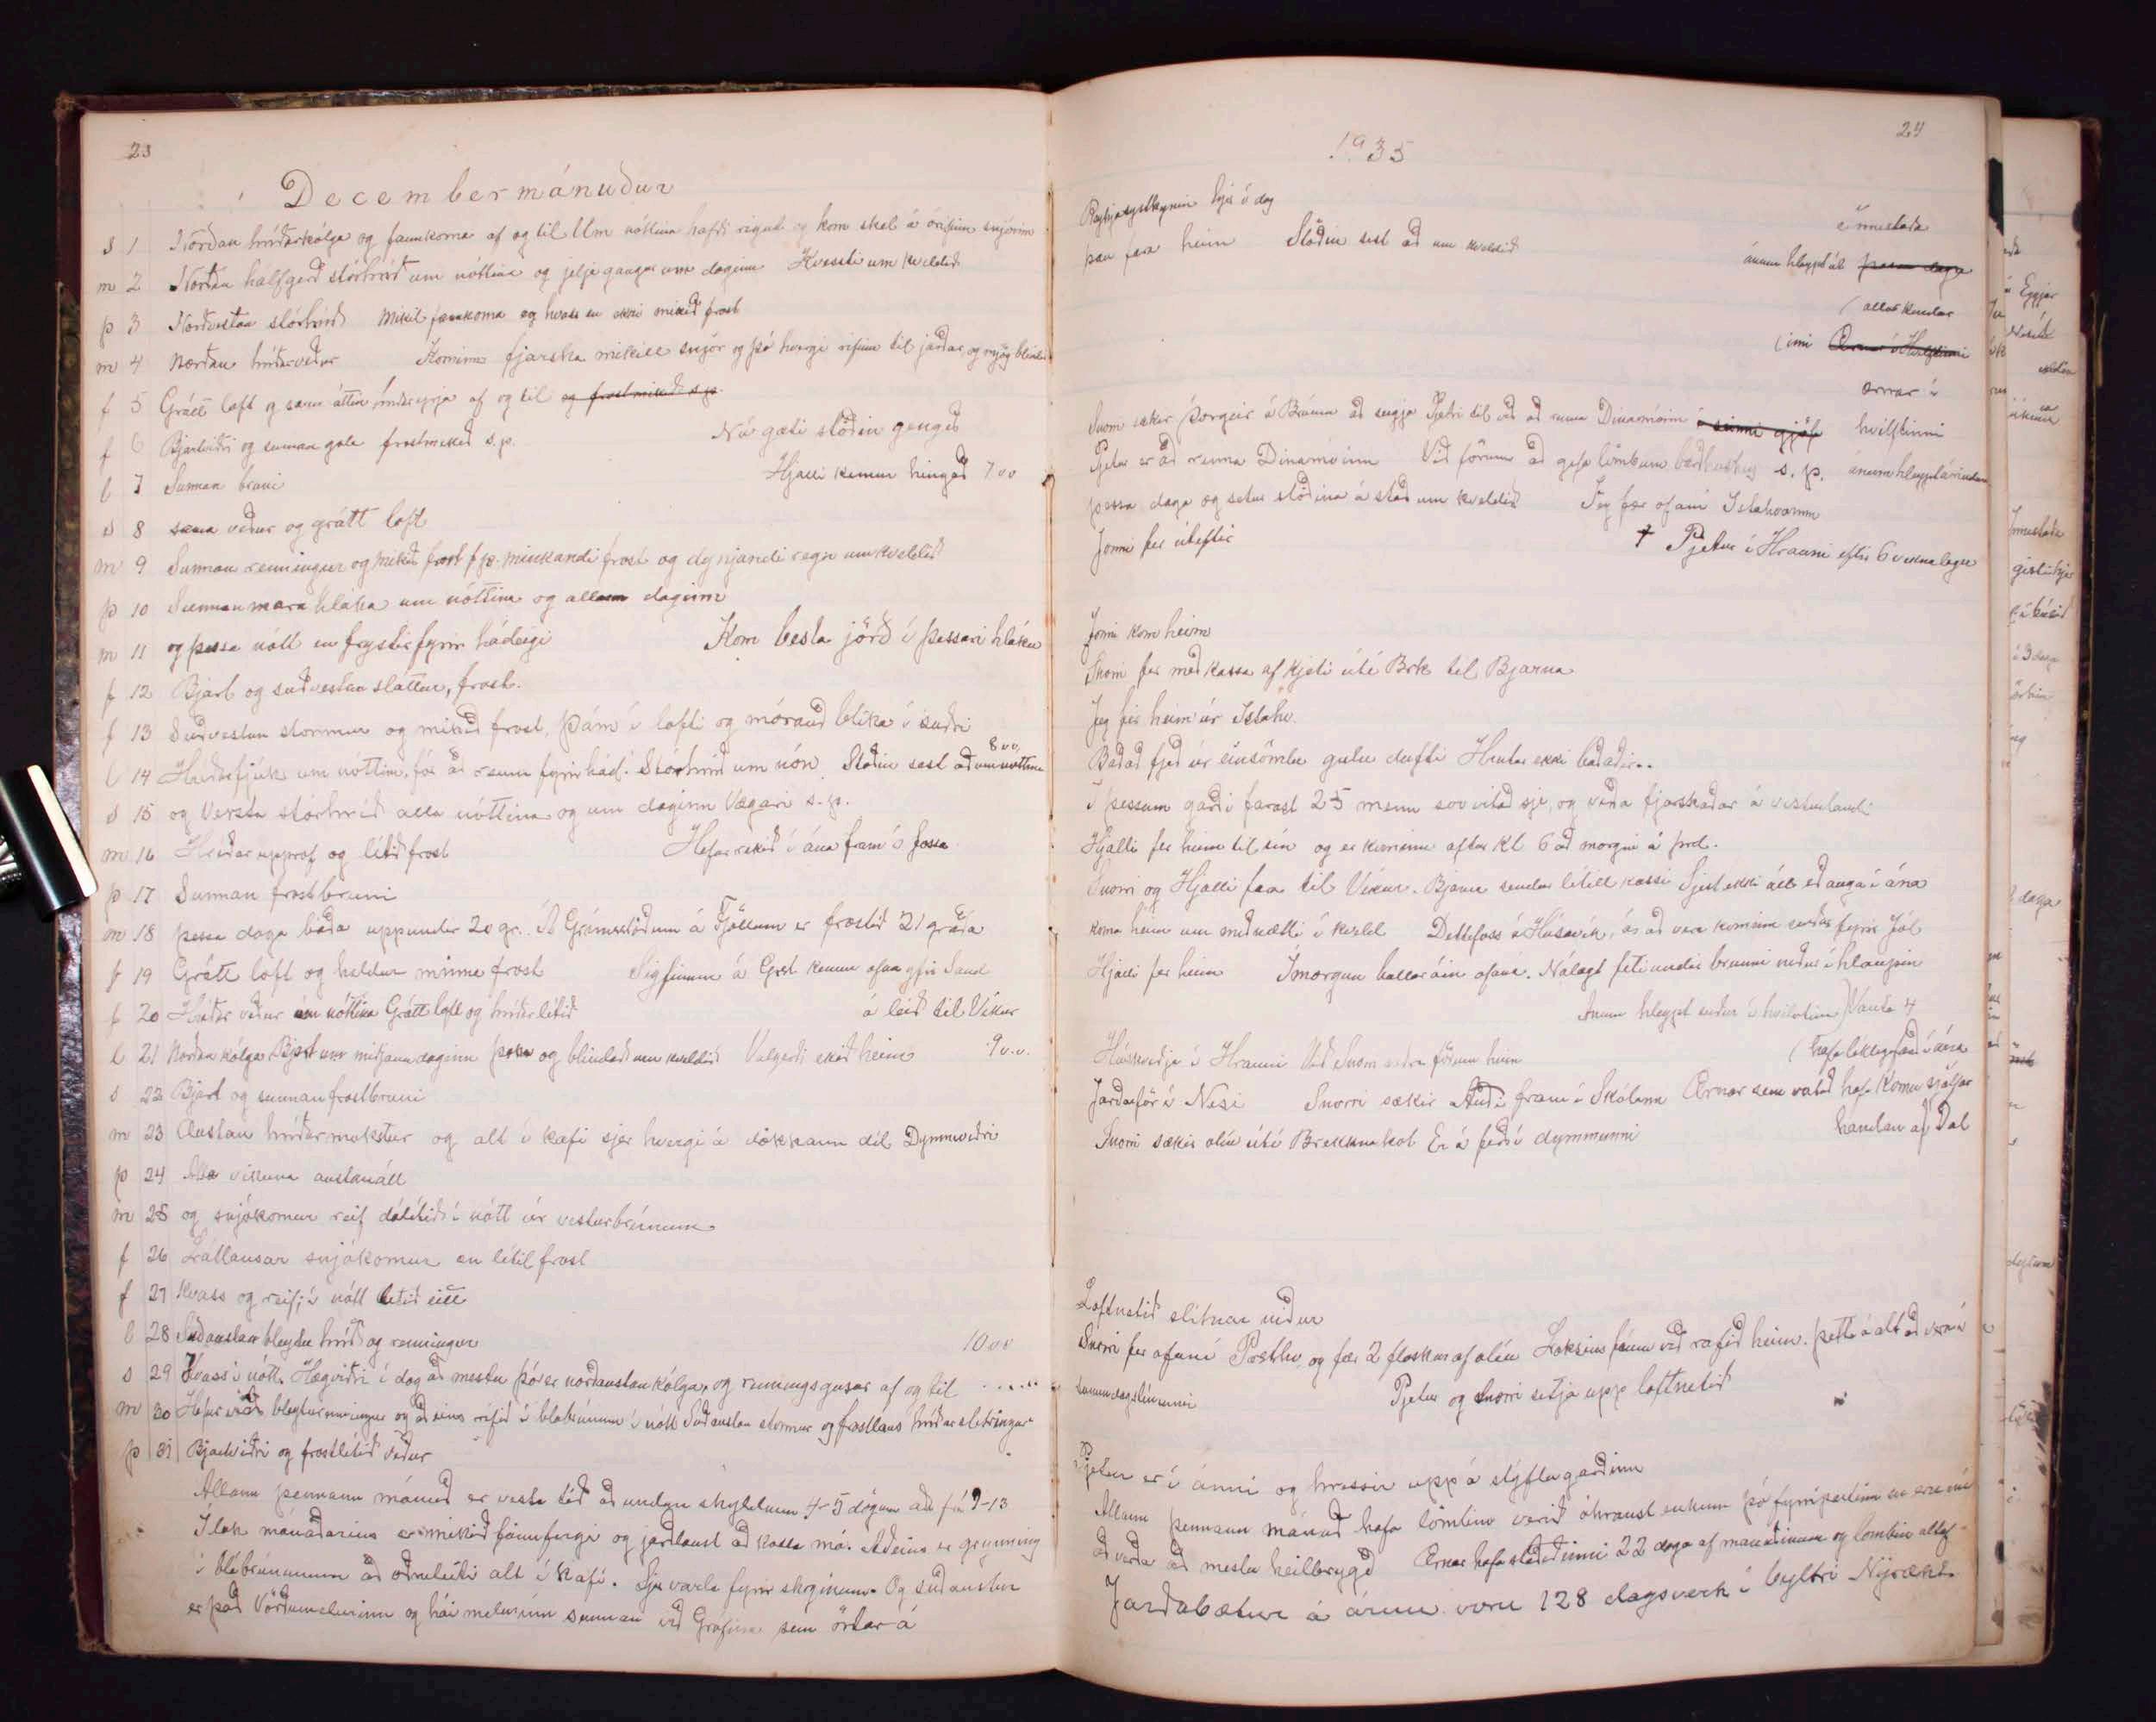 23
Decembermánuður
s 1 Norðan hríðarkólga og fannkoma af og til Um nóttina hafði rignt og kom skel á órifinn snjóinn
m 2 Norðan hálfgerð stórhríð um nóttina og jeljagangur um daginn Hvessti um kveldið
þ 3 Norðvestan stórhríð Mikil fannkoma og hvass en ekki mikið frost
m 4 Norðan hríðarveður Kominn fjarska mikill snjór og þó hvergi rifinn til jarðar og mjög
f 5 Grátt loft og sama áttin, hríðarýrja af og til og frostmikið s.p.
f 6 Bjartviðri og sunnan gola frostmikið s.p. Nú gæti stöðin gengið
l 7 Sunnan bruni Hjalli kemur hingað 7 vv
s 8 sama veður og grátt loft
m 9 Sunnan renningur og mikið frost f.p. minkandi frost og dynjandi regn um kveldið
þ 10 Sunnan mara hláka um nóttina og allann daginn
m 11 og þessa nótt en frystir fyrir hádegi Kom besta jörð í þessari hláku
f 12 Bjart og suðvestan slattur, frost.
f 13 Suðvestan stormur og mikið frost. Þám í lofti og mórauð blika í suðri
l 14 Hríðarfjúk um nóttina, fór að renna fyrir hád. Stórhríð um nón. Stöðin sest að um nóttina 8 vv.
s 15 og Versta stórhríð alla nóttina og um daginn Vægari s.p.
m 16 Hríðar upprof og lítið frost Hefur rekið í ána fram í fossa.
þ 17 Sunnan frostbruni
m 18 þessa daga báða uppundir 20 gr. Á Grímsstöðum á Fjöllum er frostið 21 gráða
f 19 Grátt loft og heldur minna frost Sigfinnur á Grst kemur ofan yfir Sand
f 20 Hríðar veður um nóttina Grátt loft og hríðarlítið á leið til Víkur
l 21 Norðan kólga, Bjart um miðjann daginn þoka og blindað um kveldið Valgerði ekið heim 9 v.v.
s 22 Bjart og sunnan frostbruni
m 23 Austan hríðarmokstur og alt í kafi sjer hvergi á dökkann díl Dymmviðri
þ 24 Alla vikuna austanátt
m 25 og snjókomur reif dálítið í nótt úr vesturbrúnum
f 26 Látlausar snjókomur en lítil frost
f 27 Hvass og reif í nótt lítið eitt
l 28 Suðaustan bleytu hríð og renningur 10 vv
s 29 Hvass í nótt. Hægviðri í dag að mestu þó er norðaustan kólga, og renningsgusur af og til
m 30 Hefur verið bleyturenningur og aðeins rifið í blábrúnum í nótt Suðaustan stormur og frostlaus hríðarslitringur
þ 31 Bjartviðri og frostlítið veður
Allann þennann mánuð er vesta tíð að undan skyldum 4-5 dögum frá 9-13
Í lok mánaðarins er mikið fannfergi og jarðlaust að kalla má. Aðeins er grynning
í blábrúnunum að öðruleiti alt í kafi. Sjer varla fyrir skógnum. Og suðaustur
er það Vörðumelurinn og hái melurinn sunnan við Gráfurnar sem örlar á
1935
24
hjá í dag
þau fara heim Stöðin sest að um kveldið
innistaða
ánum hleypt út þessa daga
allar kindar
inni Ærnar í Hvilftinni
ærnar í
Snorri sækir Þorgeir á Brúnum að segja Pjetri til við að renna Dinamóinn í sinni gjöf hvilftinni
Pjetur er að renna Dinamóinn Við förum að gefa lömbum s.p. ánum hleypt
þessa daga og setur stöðina á stað um kveldið Jeg fer ofaní Islahvamm
Jonni fer úteftir † Pjetur í Hrauni eftir 6 vikna legu
Jonni kom heim
Snorri fer með kassa af kjöti útí Brk til Bjarna
Jeg fer heim úr Islahv.
Baðað fjeð úr gulu dufti Hrútar ekki baðaðir..
Í þessum garði farast 25 menn svo vitað sje, og verða fjárskaðar á vesturlandi
Hjalli fer heim til sín og er kominn aftur kl 6 að morgni á þrd.
Snorri og Hjalli fara til Víkur. Bjarna sendur lítill kassi Sjest ekki áll eð auga í ána
koma heim um miðnætti í kveld Dettifoss á Húsavík, á að vera kominn suður fyrir Jól
Hjalli fer heim Ímorgun ballar áin ofaná. Nálægt fetiundir brunni niður í hlaupin
Ánum hleypt suður í hvilftina Vanta 4
Húskveðja í Hrauni Við Snorri förum heim (hafa líklega farið í ána
Jarðarför á Nesi Snorri sækir Auði fram í Skólann Ærnar sem vatað hafa komu sjálfar
Snorri sækir olíu útí Brekknakot Er á ferð í dymmunni handan af Dal
Loftnetið slitnar niður
Snorri fer ofaní Presthv og fær 2 flöskur af olíu Loksins fáum við rafið heim. þetta á alt að vera á
sunnudagslínunni Pjetur og Snorri setja upp loftnetið
Pjetur er í ánni og hressir upp á stýflugarðinn
Allann þennann mánuð hafa lömbin verið óhraust einkum þó fyripartinn en eru nú
að verða að mestu heilbrygð Ærnar hafa staðið inni 22 daga af mánuðinum og lömbin altaf
Jarðabætur á árinu voru 128 dagsverk í byltri Nýrækt